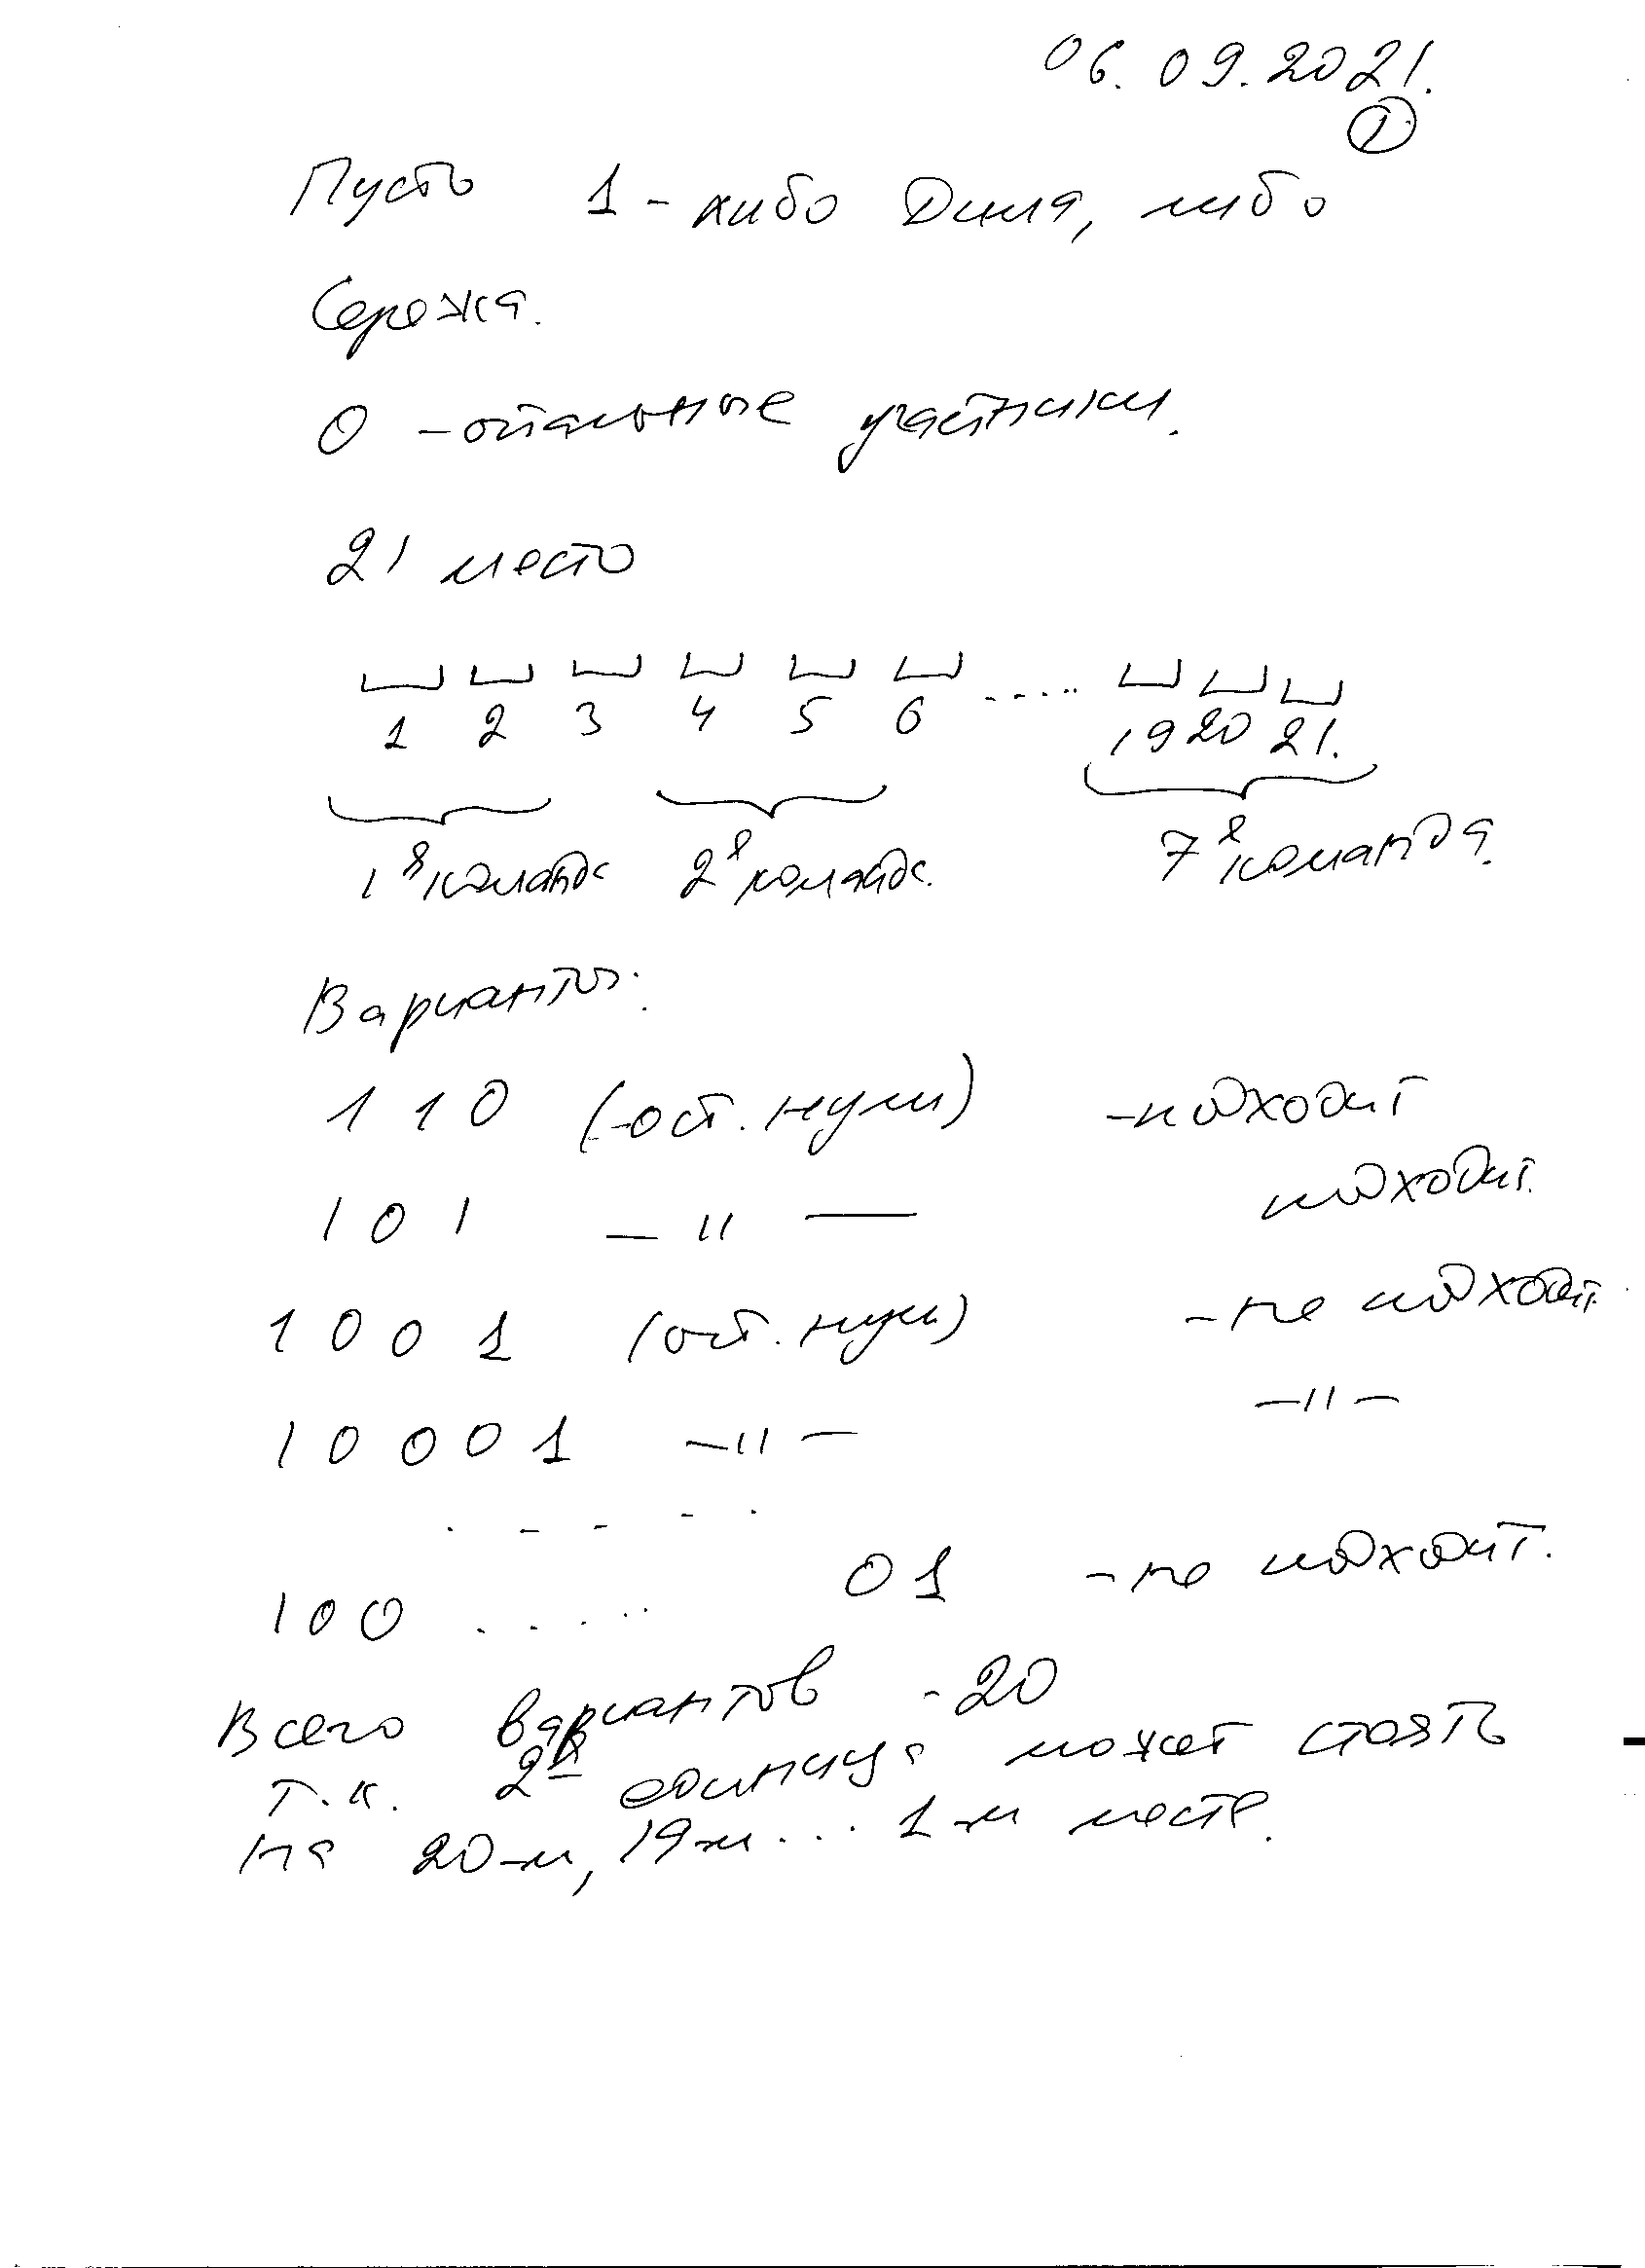 06.09.2021.
1
Пусть 1 - либо Дима, либо
Сережа.
0 - остальные участники.
21 место
1 2 3 4 5 6 ..... 19 20 21.
1я команда 2я команда. 7я команда.
Варианты:
1 1 0 (-ост. нули) - подходит
1 0 1 — " — подходит.
1 0 0 1 (ост. нули) - не подходит.
1 0 0 0 1 — " — — " —
. - - - .
1 0 0 ..... 0 1 - не подходит.
Всего вариантов - 20
т.к. 2я единица может стоять
на 20-м, 19-м... 1-м месте.